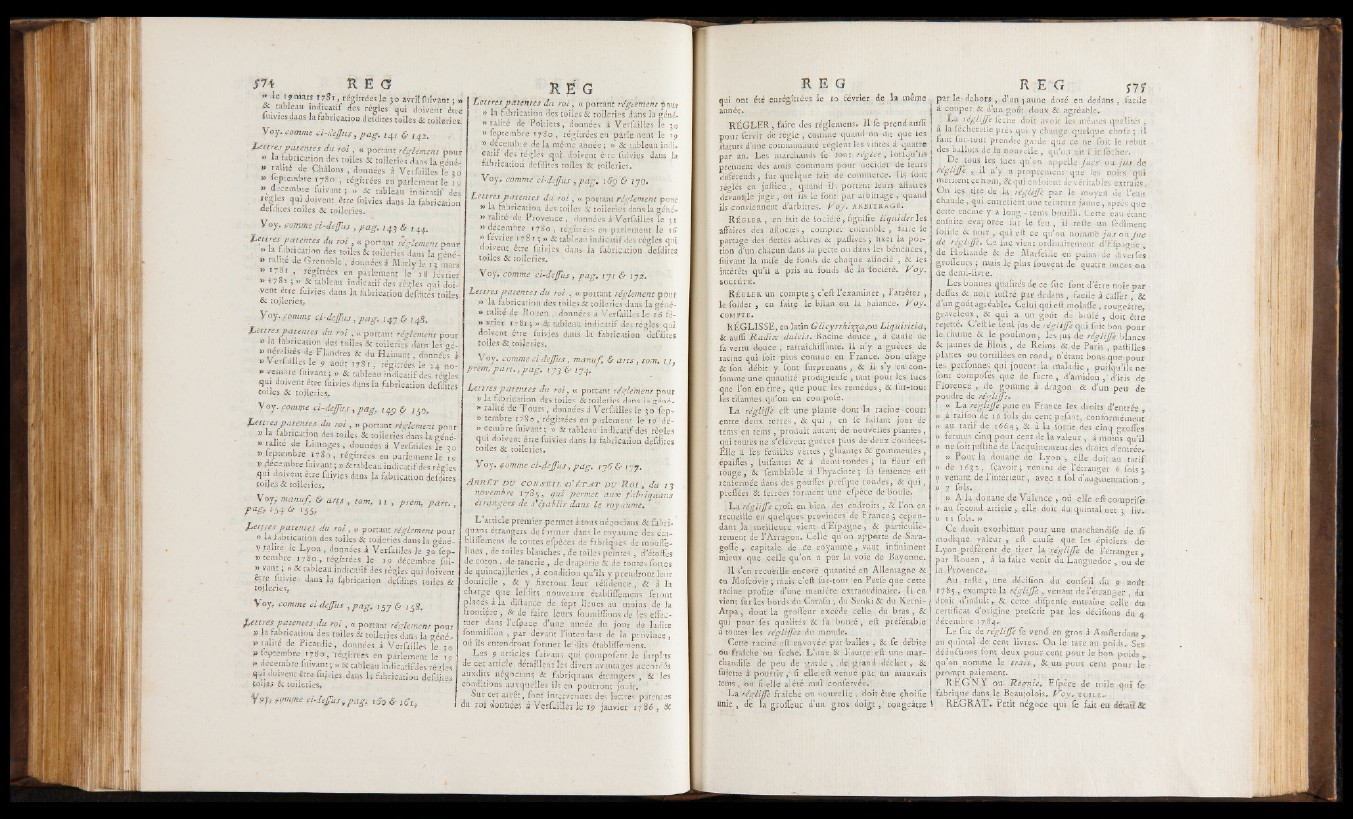 574 REG
» le 19 mars 1781, régitrées le 30 avril suivant ; »
& tableau indicatif des règles qui doivent être
suivies dans la fabrication desdites toiles & toileries.
Voy. comme ci-dessus, pag. 141 & 142.
Lettres patentes du roi, « portant réglement pour
» la fabrication des toiles & toileries dans la géné-
» ralité de Châlons, données à Versailles le 30
» septembre 1780, régitrées en parlement le 19
» décembre suivant ; » & tableau indicatif des
règles qui doivent être suivies dans la fabrication
desdites toiles & toileries.
Voy. comme ci-dessus, pag. 143 & 144.
Lettres patentes du roi, « portant réglement pour
» la fabrication des toiles & toileries dans la géné-
» ralité de Grenoble, données à Marly le 13 mars
» 1781, régitrées en parlement le 28 février
» 1782 ; » & tableau indicatif des règles qui doi-
vent être suivies dans la fabrication desdites toiles
& toileries.
Voy. comme ci-dessus, pag. 147 & 148.
Lettres patentes du roi, « portant réglement pour
» la fabrication des toiles & toileries dans les gé-
» néralités de Flandres & du Hainaut, données à
» Versailles le 9 août 1781, régitrées le 24 no-
» vembre suivant ; » & tableau indicatif des règles
qui doivent être suivies dans la fabrication desdites
toiles & toileries.
Voy. comme ci-dessus, pag. 149 & 150.
Lettres patentes du roi, « portant réglement pour
» la fabrication des toiles & toileries dans la géné-
» ralité de Limoges, données à Versailles le 30
» septembre 1780, régitrées en parlement le 19
» décembre suivant ; » & tableau indicatif des règles
qui doivent être suivies dans la fabrication desdites
toiles & toileries.
Voy. manuf. & arts, tom. 11, prem. part.,
pag. 154 & 155.
Lettres patentes du roi, « portant réglement pour
» la fabrication des toiles & toileries dans la géné-
» ralité de Lyon, données à Versailles le 30 sep-
» tembre 1780, régitrées le 19 décembre sui-
» vant ; » & tableau indicatif des règles qui doivent
être suivies dans la fabrication desdites toiles &
toileries.
Voy. comme ci-dessus, pag. 157 & 158.
Lettres patentes du roi, « portant réglement pour
» la fabrication des toiles & toileries dans la géné-
» ralité de Picardie, données à Versailles le 30
» septembre 1780, régitrées en parlement le 19
» décembre suivant ; » & tableau indicatif des règles
qui doivent être suivies dans la fabrication desdites
toiles & toileries.
Voy. comme ci-dessus, pag. 160 & 161.
RÉG
Lettres patentes du roi, « portant réglement pour
» la fabrication des toiles & toileries dans la géné-
» ralité de Poitiers, données à Versailles le 30
» septembre 1780, régitrées en parlement le 19
» décembre de la même année ; » & tableau indi-
catif des règles qui doivent être suivies dans la
fabrication desdites toiles & toileries.
Voy. comme ci-dessus, pag. 169 & 170.
Lettres patentes du roi, « portant réglement pour
» la fabrication des toiles & toileries dans la géné-
» ralité de Provence, données à Versailles le 31
» décembre 1780, régitrées en parlement le 16
» février 1781 ; » & tableau indicatif des règles qui
doivent être suivies dans la fabrication desdites
toiles & toileries.
Voy. comme ci-dessus, pag. 171 & 172.
Lettres patentes du roi, « portant réglement pour
» la fabrication des toiles & toileries dans la géné-
» ralité de Rouen, données à Versailles le 26 fé-
» vrier 1781 ; » & tableau indicatif des règles qui
doivent être suivies dans la fabrication desdites
toiles & toileries.
Voy. comme ci-dessus, manuf. & arts, tom. 11,
prem. part., pag. 173 & 174.
Lettres patentes du roi, « portant réglement pour
» la fabrication des toiles & toileries dans la géné-
» ralité de Tours, données à Versailles le 30 sep-
» tembre 1780, régitrées en parlement le 19 dé-
» cembre suivant ; » & tableau indicatif des règles
qui doivent être suivies dans la fabrication desdites
toiles & toileries.
Voy. comme ci-dessus, pag. 176 & 177.
ARRÊT DU CONSEIL D'ÉTAT DU ROI, du 13
novembre 1785, qui permet aux fabriquans
étrangers de s'établir dans le royaume.
L'article premier permet à tous négocians & fabri-
quans étrangers de former dans le royaume des éta-
blissemens de toutes espèces de fabriques de mousse-
lines, de toiles blanches, de toiles peintes, d'étoffes
de coton, de tanerie, de draperie & de toutes sortes
de quincailleries, à condition qu'ils y prendront leur
domicile, & y fixeront leur résidence, & à la
charge que lesdits nouveaux établissemens seront
placés à la distance de sept lieues au moins de la
frontière, & de faire leurs soumissions de les effec-
tuer dans l'espace d'une année du jour de ladite
soumission, par devant l'intendant de la province,
où ils entendront former lesdits établissemens.
Les 9 articles suivans qui composent le surplus
de cet article, détaillent les divers avantages accordés
auxdits négocians & fabriquans étrangers, & les
conditions auxquelles ils en pourront jouir.
Sur cet arrêt, sont intervenues des lettres patentes
du roi données à Versailles le 19 janvier 1786, &
REG
qui ont été enrégitrées le 10 février de la même
année.
RÉGLER, faire des réglemens. Il se prend aussi
pour servir de règle, comme quand on dit que les
statuts d'une communauté règlent les visites à quatre
par an. Les marchands se sont réglés, lorsqu'ils
prennent des amis communs pour décider de leurs
différends, sur quelque fait de commerce. Ils sont
réglés en justice, quand ils portent leurs affaires
devant le juge, ou ils le sont par arbitrage, quand
ils conviennent d'arbitres. Voy. ARBITRAGE.
RÉGLER, en fait de société, signifie liquider les
affaires des associés, compter ensemble, faire le
partage des dettes actives & passives, fixer la por-
tion d'un chacun dans la perte ou dans les bénéfices,
suivant la mise de fonds de chaque associé, & les
intérêts qu'il a pris au fonds de la société. Voy.
SOCIÉTÉ.
RÉGLER un compte ; c'est l'examiner, l'arrêter,
le solder, en faire le bilan ou la balance. Voy.
COMPTE.
RÉGLISSE, en latin Glicyrrhiza, ou Liquiritia,
& aussi Radix dulcis. Racine douce, à cause de
sa vertu douce, rafraîchissante. Il n'y a guères de
racine qui soit plus connue en France. Son usage
& son débit y sont surprenans, & il s'y en con-
somme une quantité prodigieuse, tant pour les sucs
que l'on en tire, que pour les remèdes, & sur-tout
les tisannes qu'on en compose.
La réglisse est une plante dont la racine court
entre deux terres, & qui, en se faisant jour de
tems en tems, produit autant de nouvelles plantes
qui toutes ne s'élèvent guères plus de deux coudées.
Elle a les feuilles vertes, gluantes & gommeutes,
épaisses, luisantes & à demi-rondes ; la fleur est
rouge, & semblable à l'hyacinte ; la semence est
renfermée dans des gousses presque rondes, & qui,
pressées & serrées forment une espèce de boule.
La réglisse croît en bien des endroits, & l'on en
recueille en quelques provinces de France ; cepen-
dant la meilleure vient d'Espagne, & particuliè-
rement de l'Arragon. Celle qu'on apporte de Sara-
gosse, capitale de ce royaume, vaut infiniment
mieux que celle qu'on a par la voie de Bayonne.
Il s'en recueille encore quantité en Allemagne &
en Moscovie ; mais c'est sur-tout en Perse que cette
racine profite d'une manière extraordinaire. Il en
vient sur les bords du Carasu, du Senki & du Kerni-
Arpa, dont la grosseur excède celle du bras, &
qui pour ses qualités & sa bonté, est préférable
à toutes les réglisses du monde.
Cette racine est envoyée par balles, & se débite
ou fraîche ou sèche. L'une & l'autre est une mar-
chandise de peu de garde, de grand déchet, &
sujette à pourrir, si elle est venue par un mauvais
tems, ou si elle a été mal conservée.
La réglisse fraîche ou nouvelle, doit être choisie
unie, de la grosseur d'un gros doigt, rougeâtre
REG 575
par le dehors, d'un jaune doré en dedans, facile
à couper & d'un goût doux & agréable.
La réglisse sèche doit avoir les mêmes qualités,
à la sécheresse près qui y change quelque chose ; il
faut sur-tout prendre garde que ce ne soit le rebut
des ballots de la nouvelle, qu'on ait fait sécher.
De tous les sucs qu'on appelle jucs ou jus de
réglisse, il n'y a proprement que les noirs qui
méritent ce nom, & qui en soient de véritables extraits.
On les tire de la réglisse par le moyen de l'eau
chaude, qui en retient une teinture jaune, après que
cette racine y a long-tems bouilli. Cette eau étant
ensuite évaporée sur le feu, il reste un sédiment
solide & noir, qui est ce qu'on nomme jus ou suc
de réglisse. Ce suc vient ordinairement d'Espagne,
de Hollande & de Marseille en pains de diverses
grosseurs ; mais le plus souvent de quatre onces ou
de demi-livre.
Les bonnes qualités de ce suc sont d'être noir par-
dessus & noir lustré par dedans, facile à casser, &
d'un goût agréable. Celui qui est molasse, rougeâtre,
graveleux, & qui a un goût de brûlé, doit être
rejetté. C'est le seul jus de réglisse qui soit bon pour
le rhume & le poulmon, les jus de réglisse blancs
& jaunes de Blois, de Reims & de Paris, pastilles
plattes ou tortillées en rond, n'étant bons que pour
les personnes qui jouent la maladie, puisqu'ils ne
sont composés que de sucre, d'amidon, d'iris de
Florence, de gomme à dragon & d'un peu de
poudre de réglisse.
« La réglisse paie en France les droits d'entrée,
» à raison de 15 sols du cent pesant, conformément
» au tarif de 1664 ; & à la sortie des cinq grosses
» fermes cinq pour cent de la valeur, à moins qu'il
» ne soit justifié de l'acquittement des droits d'entrée.
» Pour la douane de Lyon, elle doit au tarif
» de 1632, sçavoir, venant de l'étranger 6 sols ;
» venant de l'intérieur, avec 1 sol d'augmentation,
» 7 sols.
» A la douane de Valence, où elle est comprise
» au second article, elle doit du quintal net 3 liv.
» 11 sols. »
Ce droit exorbitant pour une marchandise de si
modique valeur, est cause que les épiciers de
Lyon préfèrent de tirer la réglisse de l'étranger,
par Rouen, à la faire venir du Languedoc, ou de
la Provence.
Au reste, une décision du conseil du 9 août
1785, exempte la réglisse, venant de l'étranger, du
droit d'indult, & cette dispense entraîne celle du
certificat d'origine prescrit par les décisions du 4
décembre 1784.
Le suc de réglisse se vend en gros à Amsterdam,
au quintal de cent livres. On le tare au poids. Ses
déductions sont deux pour cent pour le bon poids,
qu'on nomme le trait, & un pour cent pour le
prompt paiement.
REGNY ou Régnie. Espèce de toile qui se
fabrique dans le Beaujolois. Voy. TOILE.
REGRAT. Petit négoce qui se fait en détail &